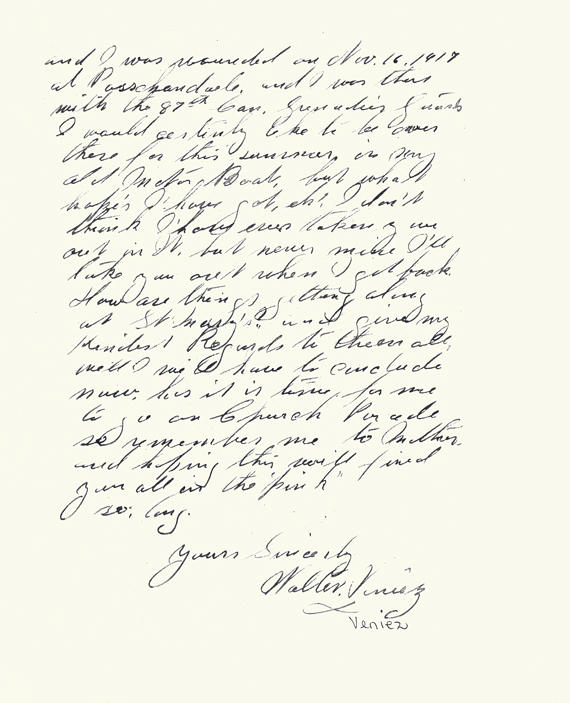 and I was wounded on Nov. 16, 1917
at Passchandale, and I was then
with the 87th Can. Grenadier Guards
I would certinly like to be over
there for this summer, in my
old Motor Boat, but what
hope's I have got, eh! I don't
think I have ever taken you
out in it. but never mind I'll
take you out when I get back.
How are things getting along
at St Mary's? and give my
Kindest Regards to them all,
well I will have to conclude
now, has it is time, for me
to go on Church Parade
so remember me to Mother.
and hoping this will find
you all in the "pink"
so, long.
Yours Sincerly
Walter. Viniez
Veniez